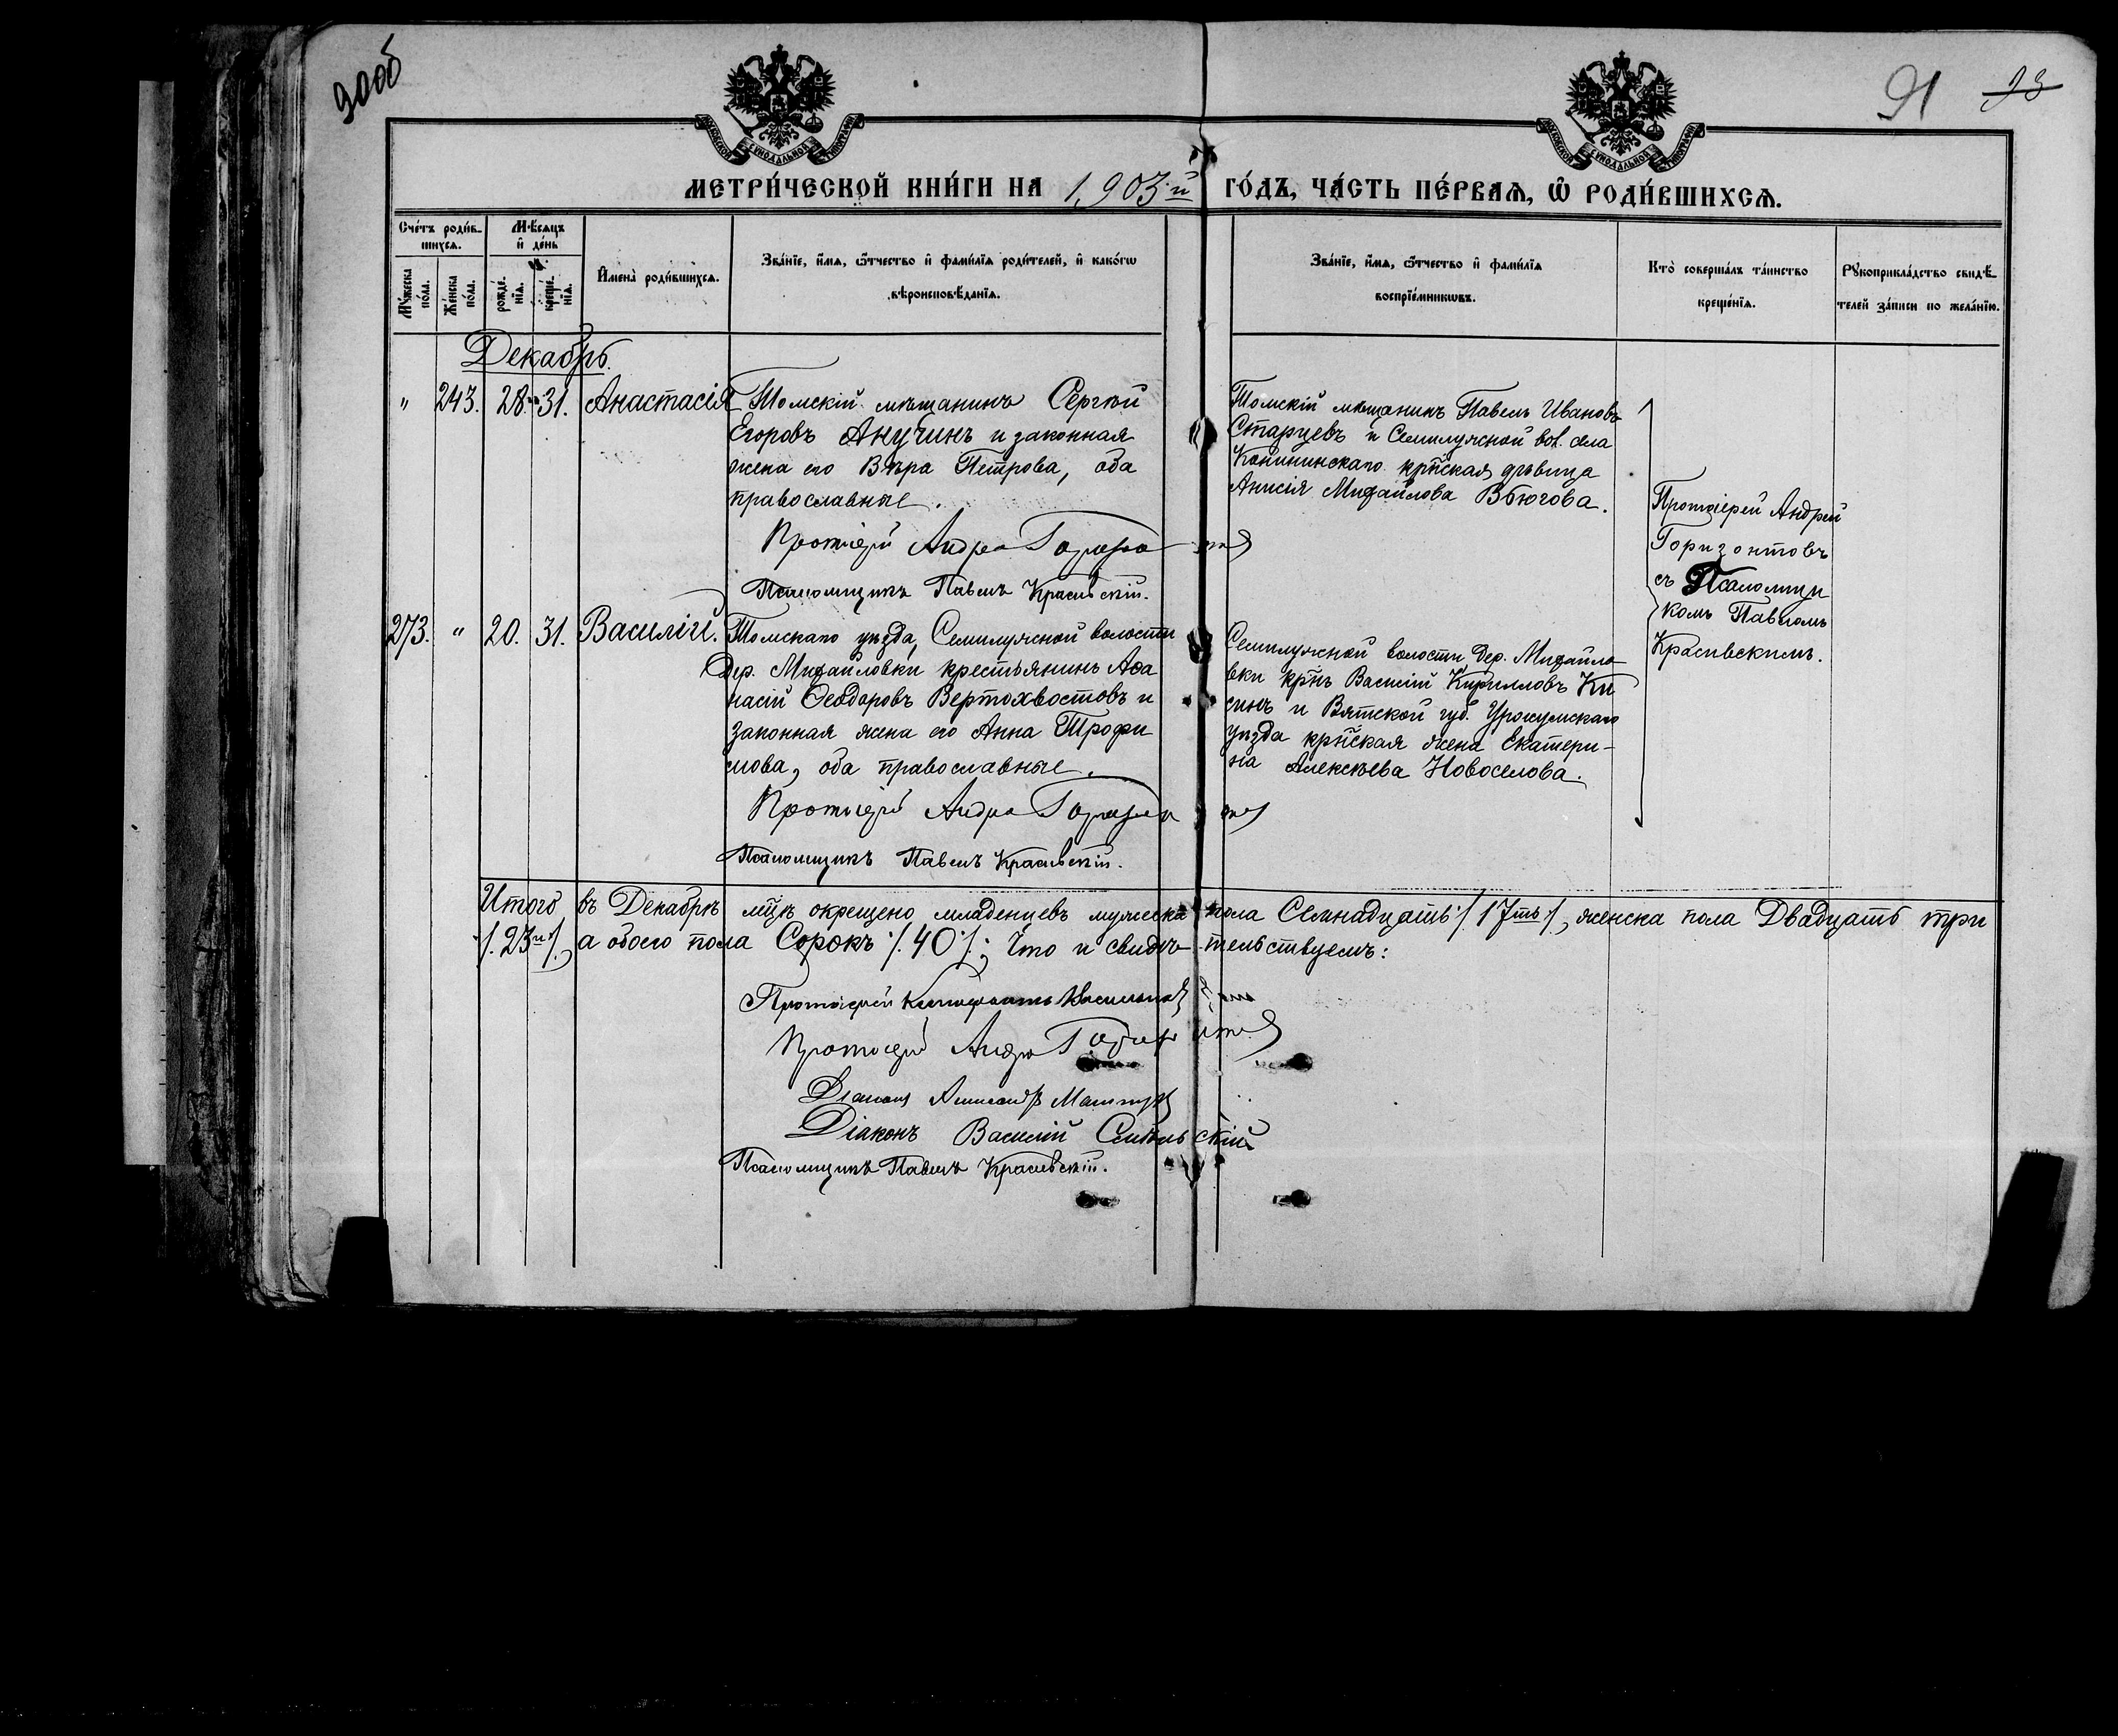 90об
91 93
МОСКОВСКОЙ СѴНОДАЛЬНОЙ ТИПОГРАФІИ
МОСКОВСКОЙ СѴНОДАЛЬНОЙ ТИПОГРАФІИ
МЕТРИ́ЧЕСКОЙ КНИ́ГИ НА 1903й ГО́ДЪ, ЧА́СТЬ ПЕ́РВАѦ, Ѽ РОДИ́ВШИХСѦ.
Сче́тъ роди́в-
шихсѧ.
Мꙋ́жеска по́ла.
Же́нска по́ла.
Мѣ́сѧцъ
и҆ де́нь
рожде́-
нїѧ.
креще́-
нїѧ.
И҆мена̀ роди́вшихсѧ.
Зва́нїе, и҆́мѧ, ѻ҆́тчество и҆ фами́лїѧ роди́телей, и҆ како́гѡ
вѣроисповѣ́данїѧ.
Зва́нїе, и҆́мѧ, ѻ҆́тчество и҆ фами́лїѧ
воспрїе́мникѡвъ.
Кто̀ соверша́лъ та́инство
креще́нїѧ.
Рꙋкоприкла́дство свидѣ́-
телей за́писи по жела́нїю.
Декабрь.
" 243. 28. 31. Анастасія
Томскій мѣщанинъ Сергѣй
Егоровъ Анучинъ и законная
жена его Вѣра Петрова, оба
православные.
Протоіерей Андрей Горизонтовъ
Псаломщикъ Павелъ Красивскій.
Томскій мѣщанинъ Павелъ Ивановъ
Старцевъ и Семилужной вол. села
Конининскаго кр\u0442ская дѣвица
Анисія Михайлова Вьюгова.
Протоіерей Андрей
Горизонтовъ
съ Псаломщи
комъ Павломъ
Красивскимъ.
273. " 20. 31. Василій.
Томскаго уѣзда, Семилужной волости
Дер. Михайловки крестьянинъ Аѳа
насій Ѳеодоровъ Вертохвостовъ и
законная жена его Анна Трофи
мова, оба православные.
Протоіерей Андрей Горизонтовъ
Псаломщикъ Павелъ Красивскій.
Семилужной волости, Дер. Михайло
вки крнъ Василій Кирилловъ Ки
синъ и Вятской губ. Уржумскаго
уѣзда кр\u0442ская жена Екатери-
на Алексѣева Новоселова.
Итого въ Декабрѣ мцѣ окрещено младенцевъ мужеска пола Семнадцать /.17ть./, женска пола Двадцать три
/.23и./, а обоего пола Сорокъ /.40./; Что и свидѣтельствуемъ:
Протоіерей
Протоіерей Андрей Горизонтовъ
Діаконъ Александръ
Діаконъ Василій
Псаломщикъ Павелъ Красивскій.